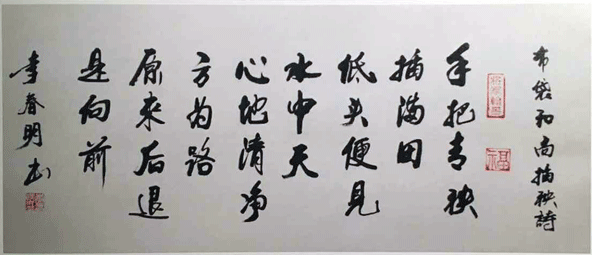 布袋和尚插秧詩
手把青秧
插满田
低头便見
水中天
心地清净
方为路
原來后退
是向前
李春明书